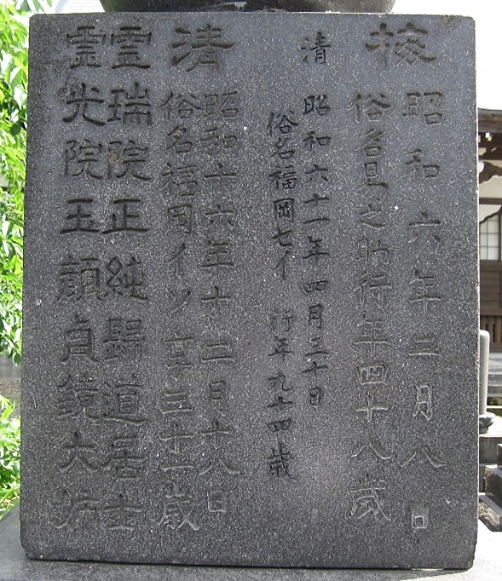 椋
昭和六年三月八日
俗名長之助行年四十八歳
清
昭和六十一年四月三十日
俗名福岡セイ 行年九十四歳
清
昭和十六年十二月十八日
俗名福岡イツ 享三十一歳
霊瑞院正純歸道居士
霊光院玉顔貞鏡大姉